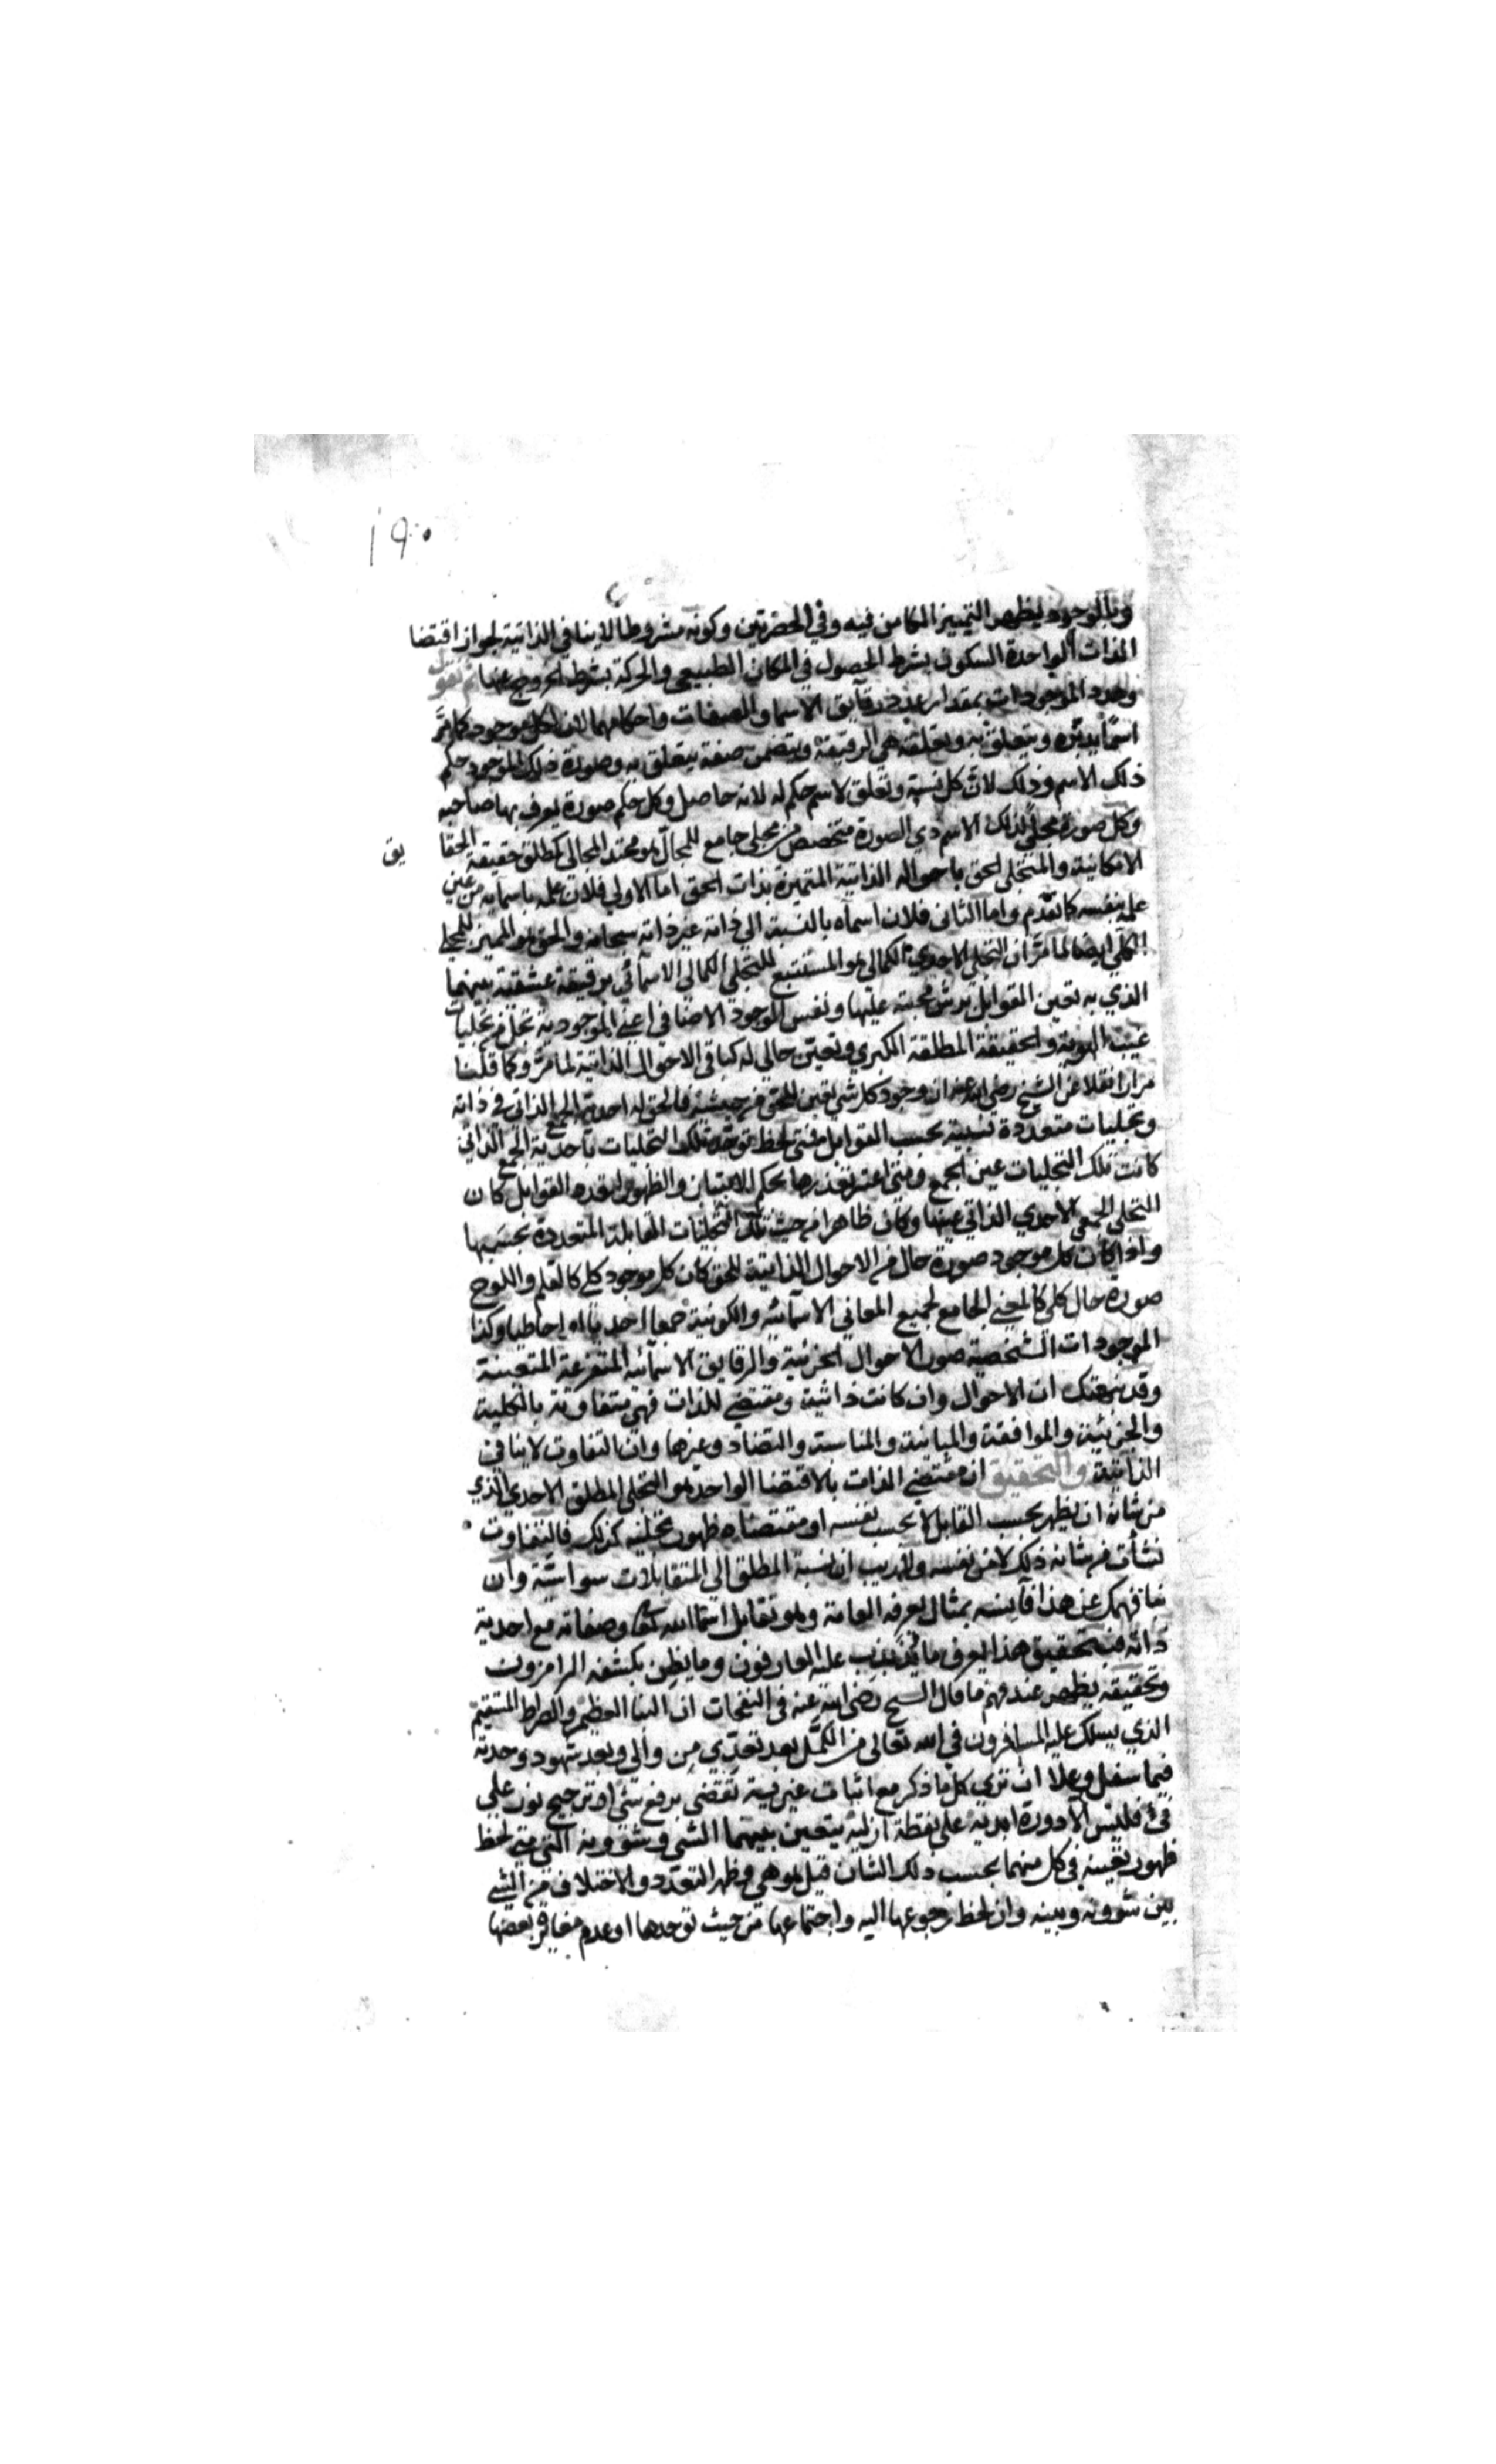 ١٩٠
وبالوجود يظهر التمييز الكامن فيه وفي الحضرتين وكونه مشروطا لا ينافي الذاتية لجواز اقتضا
الذات الواحدة السكون بشرط الحصول في المكان الطبيعي والحركة بشرط الخروج عنها ثم نقول
وجود الموجودات بمقدار عدد رقايق الاسما والصفات واحكامهما لان لكل موجود كما مر
اسما يدبره ويتعلق به وتعلقه هي الرقيقة ويتضمن صفة يتعلق به وصورة ذلك الموجود حكم
ذلك الاسم وذلك لان كل نسبة وتعلق لاسم حكم له لانه حاصل وكل حكم صورة يعرف بها صاحبه
وكل صورة مجلي لذلك الاسم ذي الصورة متخصص من مجلي جامع للمجال هو محتد المجالي كمطلق حقيقة الحقايق
الامكانية والمتجلي الحق باحواله الذاتية المتميزة بذات الحق اما الاولي فلان علمه باسمايه من عين
علمه بنفسه كما تقدم واما الثاني فلان اسماه بالنسبة الي ذاته عين ذاته سبحانه والحق هو المميز للمجلي
الكلي ايضا لما مر ان التجلي الاحدي الكمالي هو المستتبع للتجلي الكمالي الاسمائي برقيقة عشقية بينهما
الذي به تعين القوابل برش محبته عليها ونفس الوجود الاضافي اعني الموجودية تجل من تجليات
غيب الهوية والحقيقة المطلقة الكبري وتعين حالي له كباقي الاحوال الذاتية لما مر وكما قلنا
مرارا نقلا عن الشيخ رضي الله عنه ان وجود كل شي تعين للحق من حيثيته فالحق له احدية الجمع الذاتي في ذاته
وتجليات متعددة نسبية بحسب القوابل فمتي لحظ توحد تلك التجليات باحدية الجمع الذاتي
كانت تلك التجليات عين الجمع ومتي اعتبر تعددها بحكم الامتياز والظهور لتعدد القوابل كان
التجلي الجمعي الاحدي الذاتي عينها وكان ظاهرا من حيث تلك التجليات القابلة المتعددة بحسبها
واذا كان كل موجود صورة حال من الاحوال الذاتية للحق كان كل موجود كلي كالقلم واللوح
صورة حال كلي كالمعني الجامع لجميع المعاني الاسمائية والكونية جمعا احديا احاطيا وكذا
الموجودات الشخصية صور الاحوال الجزئية والرقايق الاسمائية المتفرعة المتعينة
وقد نبهتك ان الاحوال وان كانت ذاتية ومقتضي للذات فهي متفاوتة بالكلية
والجزئية والموافقة والمباينة والمناسبة والتضاد وغيرها وان التفاوت لا ينافي
الذاتية والتحقيق ان مقتضي الذات بالاقتضا الواحد هو التجلي المطلق الاحدي الذي
من شانه ان يظهر بحسب القابل لا بحسب نفسه او مقتضاه ظهور تجليه كذلك فالتفاوت
نشأت من شانه ذلك لا من نفسه ولا ريب ان نسبة المطلق الي المتقابلات سواسية وان
نبا فهمك عن هذا فآنسه بمثال يعرفه العامة وهو تقابل اسما الله تعالي وصفاته مع احدية
ذاته فبتحقيق هذا يعرف ما يدندن عليه العارفون وما يظن بكشفه الرامزون
وتحقيقه يظهر عند فهم ما قال الشيخ رضي الله عنه في النفحات ان النبا العظيم والصراط المستقيم
الذي يسلك عليه المسافرون في الله تعالي من الكمل بعد تعدي من والي وبعد شهود وحدته
فيما سفل وعلا ان تري كل ما ذكر مع اثبات غيريته تقضي برفع شي او ترجيح نور علي
فئ فليس الا دورة ابدية علي نقطة ازلية يتعين بينهما الشي وشؤونه التي متي لحظ
ظهور تعينه في كل منهما بحسب ذلك الشان قيل هو هي وظهر التعدد والاختلاف من الشي
بين شؤونه وبينه وان لحظ رجوعها اليه واجتماعها من حيث توحدها او عدم مغايرة بعضها